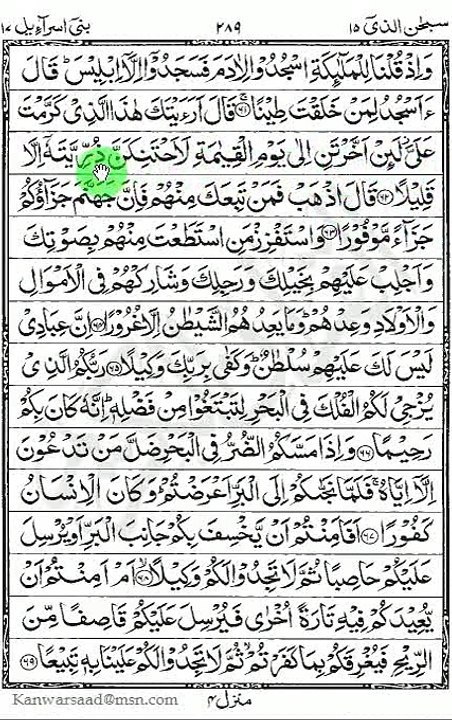 سبحٰن الذی ۱۵ ۲۸۹ بنی اسرآءیل ۱۷
وَاِذْ قُلْنَا لِلْمَلٰٓئِكَةِ اسْجُدُوْا لِاٰدَمَ فَسَجَدُوْۤا اِلَّاۤ اِبْلِیْسَ ؕ قَالَ
ءَاَسْجُدُ لِمَنْ خَلَقْتَ طِیْنًا ۚ۝۶۱ قَالَ اَرَءَیْتَكَ هٰذَا الَّذِیْ كَرَّمْتَ
عَلَیَّ ؗ لَىِٕنْ اَخَّرْتَنِ اِلٰی یَوْمِ الْقِیٰمَةِ لَاَحْتَنِكَنَّ ذُرِّیَّتَهٗۤ اِلَّا
قَلِیْلًا ۝۶۲ قَالَ اذْهَبْ فَمَنْ تَبِعَكَ مِنْهُمْ فَاِنَّ جَهَنَّمَ جَزَآؤُكُمْ
جَزَآءً مَّوْفُوْرًا ۝۶۳ وَاسْتَفْزِزْ مَنِ اسْتَطَعْتَ مِنْهُمْ بِصَوْتِكَ
وَاَجْلِبْ عَلَیْهِمْ بِخَیْلِكَ وَرَجِلِكَ وَشَارِكْهُمْ فِی الْاَمْوَالِ
وَالْاَوْلَادِ وَعِدْهُمْ ؕ وَمَا یَعِدُهُمُ الشَّیْطٰنُ اِلَّا غُرُوْرًا ۝۶۴ اِنَّ عِبَادِیْ
لَیْسَ لَكَ عَلَیْهِمْ سُلْطٰنٌ ؕ وَكَفٰی بِرَبِّكَ وَكِیْلًا ۝۶۵ رَبُّكُمُ الَّذِیْ
یُزْجِیْ لَكُمُ الْفُلْكَ فِی الْبَحْرِ لِتَبْتَغُوْا مِنْ فَضْلِهٖ ؕ اِنَّهٗ كَانَ بِكُمْ
رَحِیْمًا ۝۶۶ وَاِذَا مَسَّكُمُ الضُّرُّ فِی الْبَحْرِ ضَلَّ مَنْ تَدْعُوْنَ
اِلَّاۤ اِیَّاهُ ۚ فَلَمَّا نَجّٰىكُمْ اِلَی الْبَرِّ اَعْرَضْتُمْ ؕ وَكَانَ الْاِنْسَانُ
كَفُوْرًا ۝۶۷ اَفَاَمِنْتُمْ اَنْ یَّخْسِفَ بِكُمْ جَانِبَ الْبَرِّ اَوْ یُرْسِلَ
عَلَیْكُمْ حَاصِبًا ثُمَّ لَا تَجِدُوْا لَكُمْ وَكِیْلًا ۙ۝۶۸ اَمْ اَمِنْتُمْ اَنْ
یُّعِیْدَكُمْ فِیْهِ تَارَةً اُخْرٰی فَیُرْسِلَ عَلَیْكُمْ قَاصِفًا مِّنَ
الرِّیْحِ فَیُغْرِقَكُمْ بِمَا كَفَرْتُمْ ۙ ثُمَّ لَا تَجِدُوْا لَكُمْ عَلَیْنَا بِهٖ تَبِیْعًا ۝۶۹
Kanwarsaad@msn.com منزل ۴